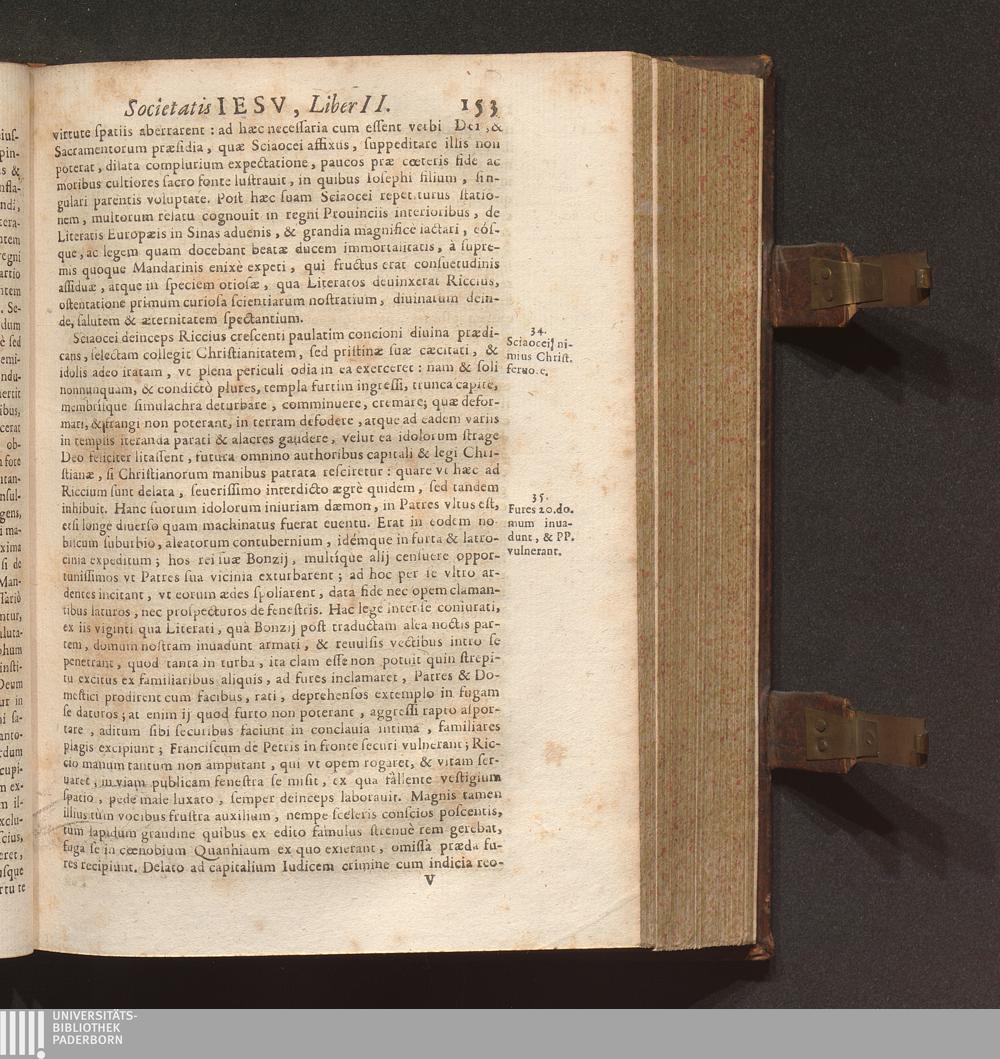 Societatis IESV, Liber II. 153
virtute spatiis aberrarent : ad hæc necessaria cum essent verbi Dei, &
Sacramentorum præsidia, quæ Sciaocei affixus, suppeditare illis non
poterat, dilata complurium expectatione, paucos præ cœteris fide ac
moribus cultiores sacro fonte lustrauit, in quibus Iosephi filium, sin-
gulari parentis voluptate. Post hæc suam Sciaocei repetiturus statio-
nem, multorum relatu cognouit in regni Prouinciis interioribus, de
Literatis Europæis in Sinas aduenis, & grandia magnificè iactari, eós-
que, ac legem quam docebant beatæ ducem immortalitatis, à supre-
mis quoque Mandarinis enixè expeti, qui fructus erat consuetudinis
assiduæ, atque in speciem otiosæ, qua Literatos deuinxerat Riccius,
ostentatione primum curiosa scientiarum nostratium, diuinarum dein-
de, salutem & æternitatem spectantium.
Sciaocei deinceps Riccius crescenti paulatim concioni diuina prædi-
cans, selectam collegit Christianitatem, sed pristinæ suæ cæcitati, &
idolis adeo iratam, vt plena periculi odia in ea exerceret : nam & soli
nonnunquam, & condictò plures, templa furtim ingressi, trunca capite,
membrisque simulachra deturbare, comminuere, cremare; quæ defor-
mari, & frangi non poterant, in terram defodere, atque ad eadem variis
in templis iteranda parati & alacres gaudere, velut ea idolorum strage
Deo feliciter litassent, futura omnino authoribus capitali & legi Chri-
stianæ, si Christianorum manibus patrata resciretur : quare vt hæc ad
Riccium sunt delata, seuerissimo interdicto ægrè quidem, sed tandem
inhibuit. Hanc suorum idolorum iniuriam dæmon, in Patres vltus est,
etsi longe diuerso quam machinatus fuerat euentu. Erat in eodem no-
bilcum suburbio, aleatorum contubernium, idémque in furta & latro-
cinia expeditum ; hos rei suæ Bonzij, multíque alij censuere oppor-
tunissimos vt Patres sua vicinia exturbarent ; ad hoc per se vltro ar-
dentes incitant, vt eorum ædes spoliarent, data fide nec opem claman-
tibus laturos, nec prospecturos de fenestris. Hac lege inter se coniurati,
ex iis viginti quà Literati, quà Bonzij post traductam alea noctis par-
tem, domum nostram inuadunt armati, & reuulsis vectibus intro se
penetrant, quod tanta in turba, ita clam esse non potuit quin strepi-
tu excitus ex familiaribus aliquis, ad fures inclamaret, Patres & Do-
mestici prodirent cum facibus, rati, deprehensos extemplo in fugam
se daturos ; at enim ij quod furto non poterant, aggressi rapto aspor-
tare, aditum sibi securibus faciunt in conclauia intima, familiares
plagis excipiunt ; Franciscum de Petris in fronte securi vulnerant ; Ric-
cio manum tantum non amputant, qui vt opem rogaret, & vitam ser-
uaret, in viam publicam fenestra se misit, ex qua fallente vestigium
spatio, pede male luxato, semper deinceps laborauit. Magnis tamen
illius tum vocibus frustra auxilium, nempe sceleris conscios poscentis,
tum lapidum grandine quibus ex edito famulus strenuè rem gerebat,
fuga se in cœnobium Quanhiaum ex quo exierant, omissa præda fu-
res recipiunt. Delato ad capitalium Iudicem crimine cum indicia reo-
V
34.
Sciaoceij ni-
mius Christ.
feruo.e.
35.
Fures 20. do.
mum inua-
dunt, & PP.
vulnerant.
UNIVERSITÄTS-
BIBLIOTHEK
PADERBORN